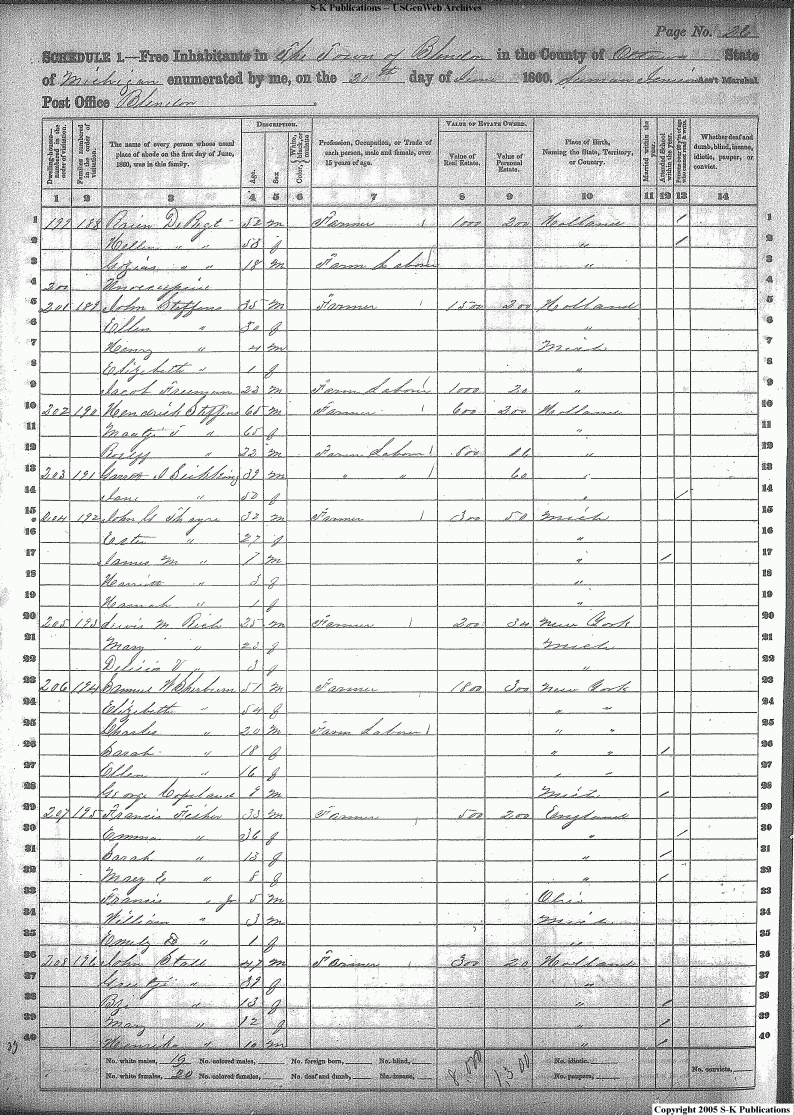 S-K Publications – USGenWeb Archives
Page No. 26
SCHEDULE 1.—Free Inhabitants in The Town of Blendon in the County of Ottawa State
of Michigan enumerated by me, on the 20th day of June 1860. Ass't Marshal
Post Office Blendon
Dwelling-house—numbered in the order of visitation.
Families numbered in the order of visitation.
The name of every person whose usual place of abode on the first day of June, 1860, was in this family.
DESCRIPTION.
Age.
Sex
Color, White, black, or mulatto
Profession, Occupation, or Trade of each person, male and female, over 15 years of age.
VALUE OF ESTATE OWNED.
Value of Real Estate.
Value of Personal Estate.
Place of Birth, Naming the State, Territory, or Country.
Married within the year.
Attended School within the year.
Whether deaf and dumb, blind, insane, idiotic, pauper, or convict.
1 2 3 4 5 6 7 8 9 10 11 12 13 14
1 199 188 De Bregt 52 m Farmer 1000 200 Holland / 1
2 Hellen " " 53 f " / 2
3 " " 18 m Farm Labour " 3
4 200 Unoccupied 4
5 201 189 John Steffens 35 m Farmer 1500 200 Holland 5
6 Ellen " 30 f " 6
7 Henry " 4 m Mich 7
8 Elizabeth " 1 f " 8
9 Jacob 23 m Farm Labour 1000 20 " 9
10 202 190 Hendrick Steffens 65 m Farmer 600 200 Holland 10
11 " 65 f " 11
12 " 22 m Farm Labour 800 16 " 12
13 203 191 39 m " " 60 " 13
14 Jane " 50 f " / 14
15 204 192 John Thayre 32 m Farmer 300 50 Mich 15
16 Ester " 27 f " 16
17 James M " 7 m " / 17
18 Harriett " 3 f " 18
19 Hannah " 1 f " 19
20 205 193 Lewis M Rich 25 m Farmer 200 34 New York 20
21 Mary " 23 f Mich 21
22 " 3 f " 22
23 206 194 Samuel W Sherburn 51 m Farmer 1800 300 New York 23
24 Elizabeth " 54 f " " 24
25 Charles " 20 m Farm Laborer " " 25
26 Sarah " 18 f " " / 26
27 Ellen " 16 f " " 27
28 George Copeland 9 m Mich / 28
29 207 195 Francis Fisher 33 m Farmer 500 200 England 29
30 Emma " 36 f " / 30
31 Sarah " 13 f " / 31
32 Mary E " 8 f " / 32
33 Francis " Jr 5 m Ohio 33
34 William " 3 m Mich 34
35 Emily D " 1 f " 35
36 208 196 John Stall 47 m Farmer 300 20 Holland 36
37 " 39 f " 37
38 " 13 f " / 38
39 Mary " 12 f " / 39
40 " 10 m " / 40
No. white males, 19 No. colored males, No. foreign born, No. blind, No. idiotic,
No. white females, 20 No. colored females, No. deaf and dumb, No. insane, 8,000 1300 No. paupers, No. convicts,
Copyright 2005 S-K Publications